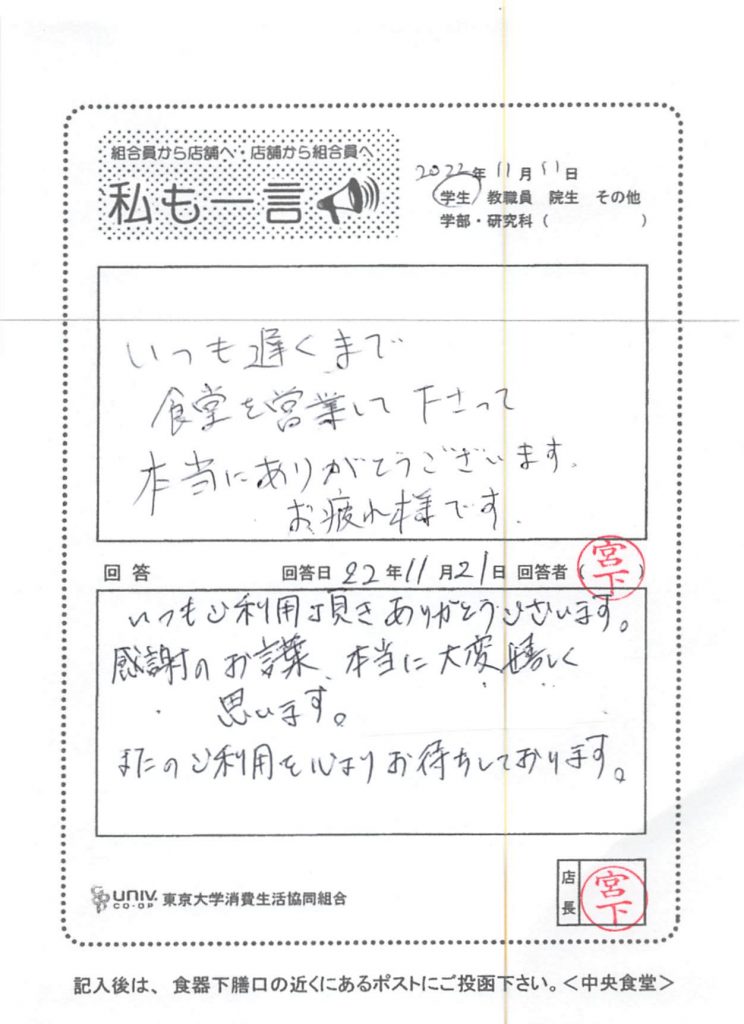 組合員から店舗へ・店舗から組合員へ
私も一言
2022年11月11日
学生 教職員 院生 その他
学部・研究科（ ）
いつも遅くまで
食堂を営業して下さって
本当にありがとうございます。
お疲れ様です。
回答 回答日 22年11月21日 回答者（宮下）
いつもご利用頂きありがとうございます。
感謝のお言葉、本当に大変嬉しく
思います。
またのご利用を心よりお待ちしております。
UNIV. CO-OP 東京大学消費生活協同組合
店長 宮下
記入後は、食器下膳口の近くにあるポストにご投函下さい。＜中央食堂＞